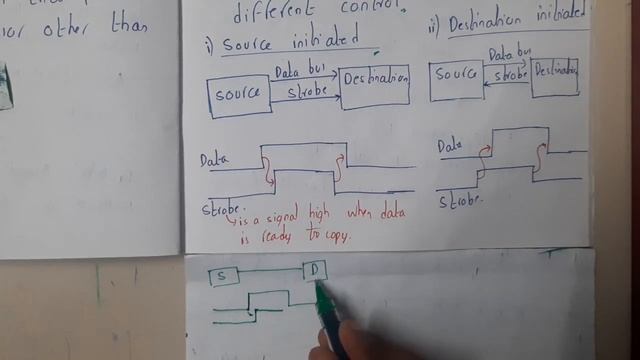 ior other than
different control.
i) Source initiated
Data bus
Source
Strobe
Destination
Data
Strobe.
is a signal high when data
is ready to copy.
ii) Destination initiated
Data bus
Source
strobe
Destination
Data
Strobe.
S
D